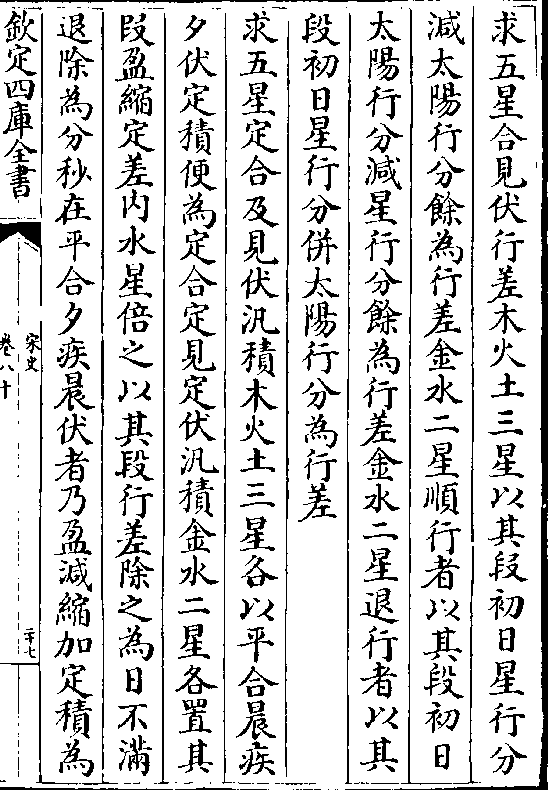 求五星合見伏行差木火土三星以其段初日星行分
減太陽行分餘為行差金水二星順行者以其段初日
太陽行分減星行分餘為行差金水二星退行者以其
段初日星行分併太陽行分為行差
求五星定合及見伏汎積木火土三星各以平合晨疾
夕伏定積便為定合定見定伏汎積金水二星各置其
段盈縮定差内水星倍之以其段行差除之為日不滿
退除為分秒在平合夕疾晨伏者乃盈減縮加定積為
欽定四庫全書
宋史
卷八十
二十七